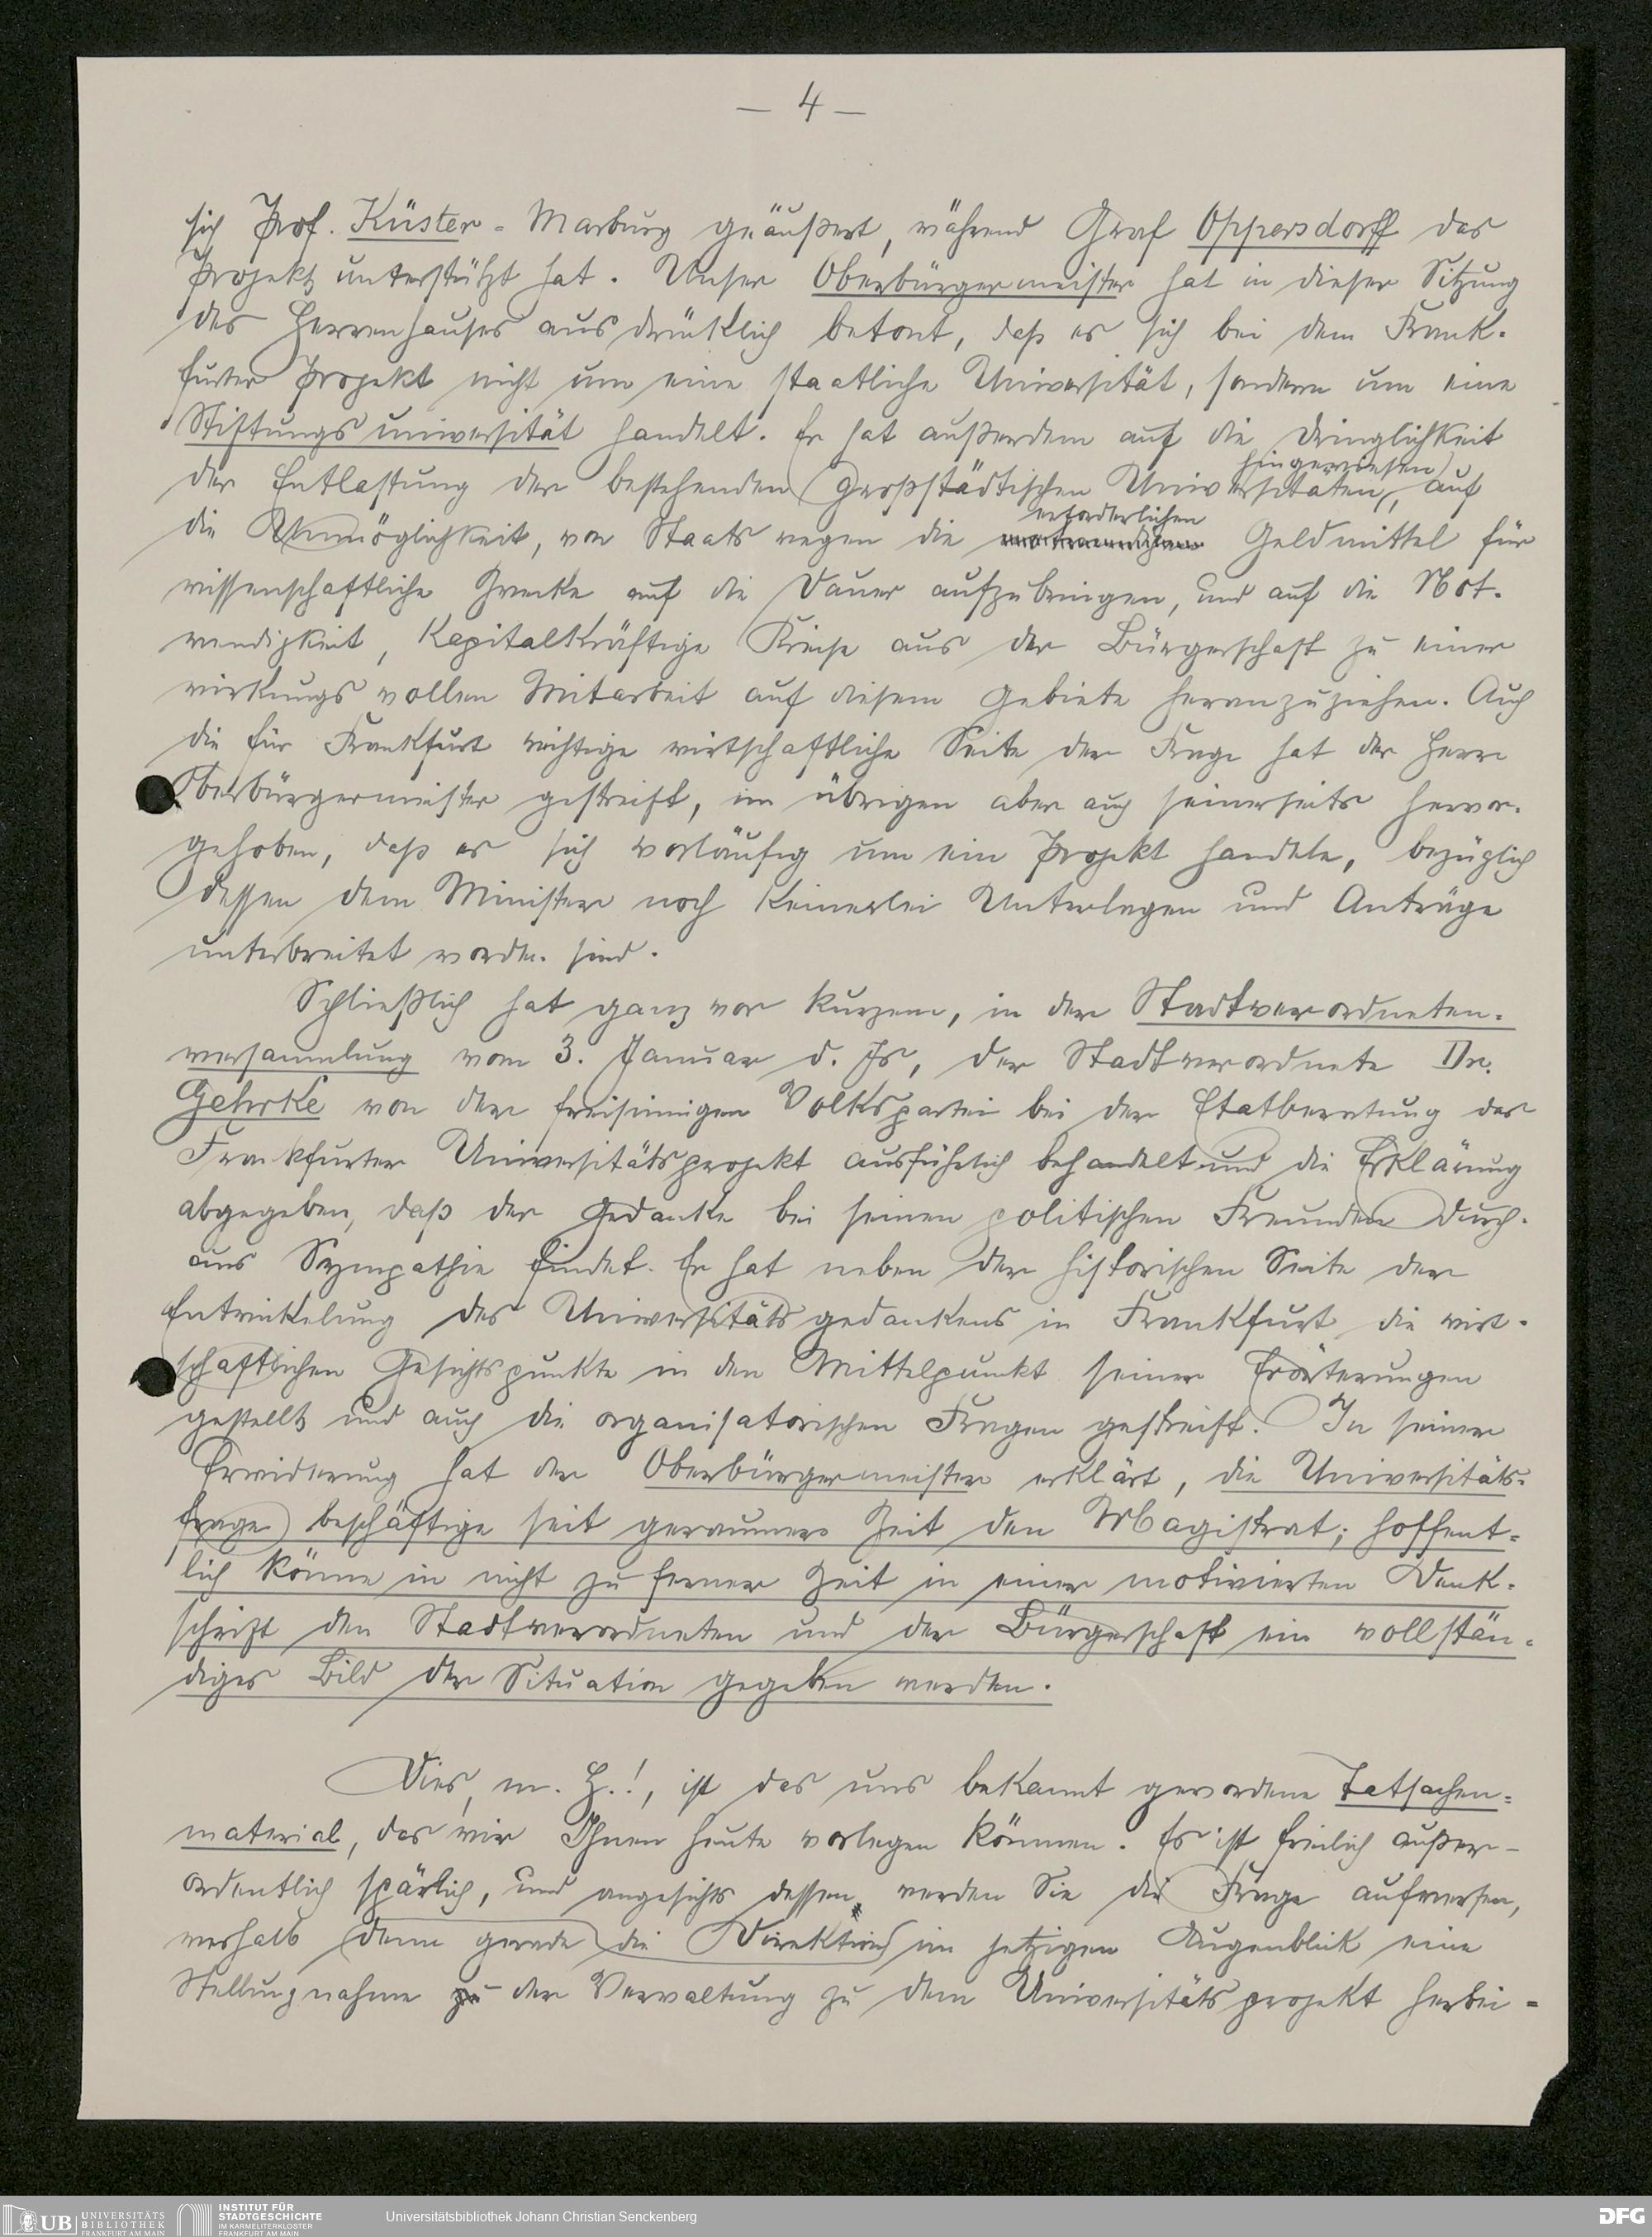 — 4 —
sich Prof. Küster - Marburg geäußert, während Graf Oppersdorff das
Projekt unterstützt hat. Unser Oberbürgermeister hat in dieser Sitzung
des Herrenhauses ausdrücklich betont, daß es sich bei dem Frank-
furter Projekt nicht um eine staatliche Universität, sondern um eine
Stiftungsuniversität handelt. Er hat außerdem auf die Dringlichkeit
hingewiesen
der Entlastung der bestehenden großstädtischen Universitäten, auf
erforderlichen
die Unmöglichkeit, von Staats wegen die Geldmittel für
wissenschaftliche Zwecke auf die Dauer aufzubringen, und auf die Not-
wendigkeit, kapitalkräftige Kreise aus der Bürgerschaft zu einer
wirkungsvollen Mitarbeit auf diesem Gebiete heranzuziehen. Auch
die für Frankfurt wichtige wirtschaftliche Seite der Frage hat der Herr
Oberbürgermeister gestreift, im übrigen aber auch seinerseits hervor-
gehoben, daß es sich vorläufig um ein Projekt handele, bezüglich
dessen dem Minister noch keinerlei Unterlagen und Anträge
unterbreitet worden sind.
Schließlich hat ganz vor kurzem, in der Stadtverordneten-
versammlung vom 3. Januar d. Js, der Stadtverordnete Dr.
Gehrke von der freisinnigen Volkspartei bei der Etatberatung das
Frankfurter Universitätsprojekt ausführlich behandelt und die Erklärung
abgegeben, daß der Gedanke bei seinen politischen Freunden durch-
aus Sympathie findet. Er hat neben der historischen Seite der
Entwickelung des Universitätsgedankens in Frankfurt die wirt-
schaftlichen Gesichtspunkte in den Mittelpunkt seiner Erörterungen
gestellt und auch die organisatorischen Fragen gestreift. In seiner
Erwiderung hat der Oberbürgermeister erklärt, die Universitäts-
frage beschäftige seit geraumer Zeit den Magistrat; hoffent-
lich könne in nicht zu ferner Zeit in einer motivierten Denk-
schrift den Stadtverordneten und der Bürgerschaft ein vollstän-
diges Bild der Situation gegeben werden.
Dies, m. H.!, ist das uns bekannt gewordene Tatsachen-
material, das wir Ihnen heute vorlegen können. Es ist freilich außer-
ordentlich spärlich, und angesichts dessen werden Sie die Frage aufwerfen,
weshalb denn gerade die Direktion im jetzigen Augenblick eine
Stellungnahme zu der Verwaltung zu dem Universitätsprojekt herbei-
UB UNIVERSITÄTS BIBLIOTHEK FRANKFURT AM MAIN
INSTITUT FÜR STADTGESCHICHTE IM KARMELITERKLOSTER FRANKFURT AM MAIN
Universitätsbibliothek Johann Christian Senckenberg
DFG